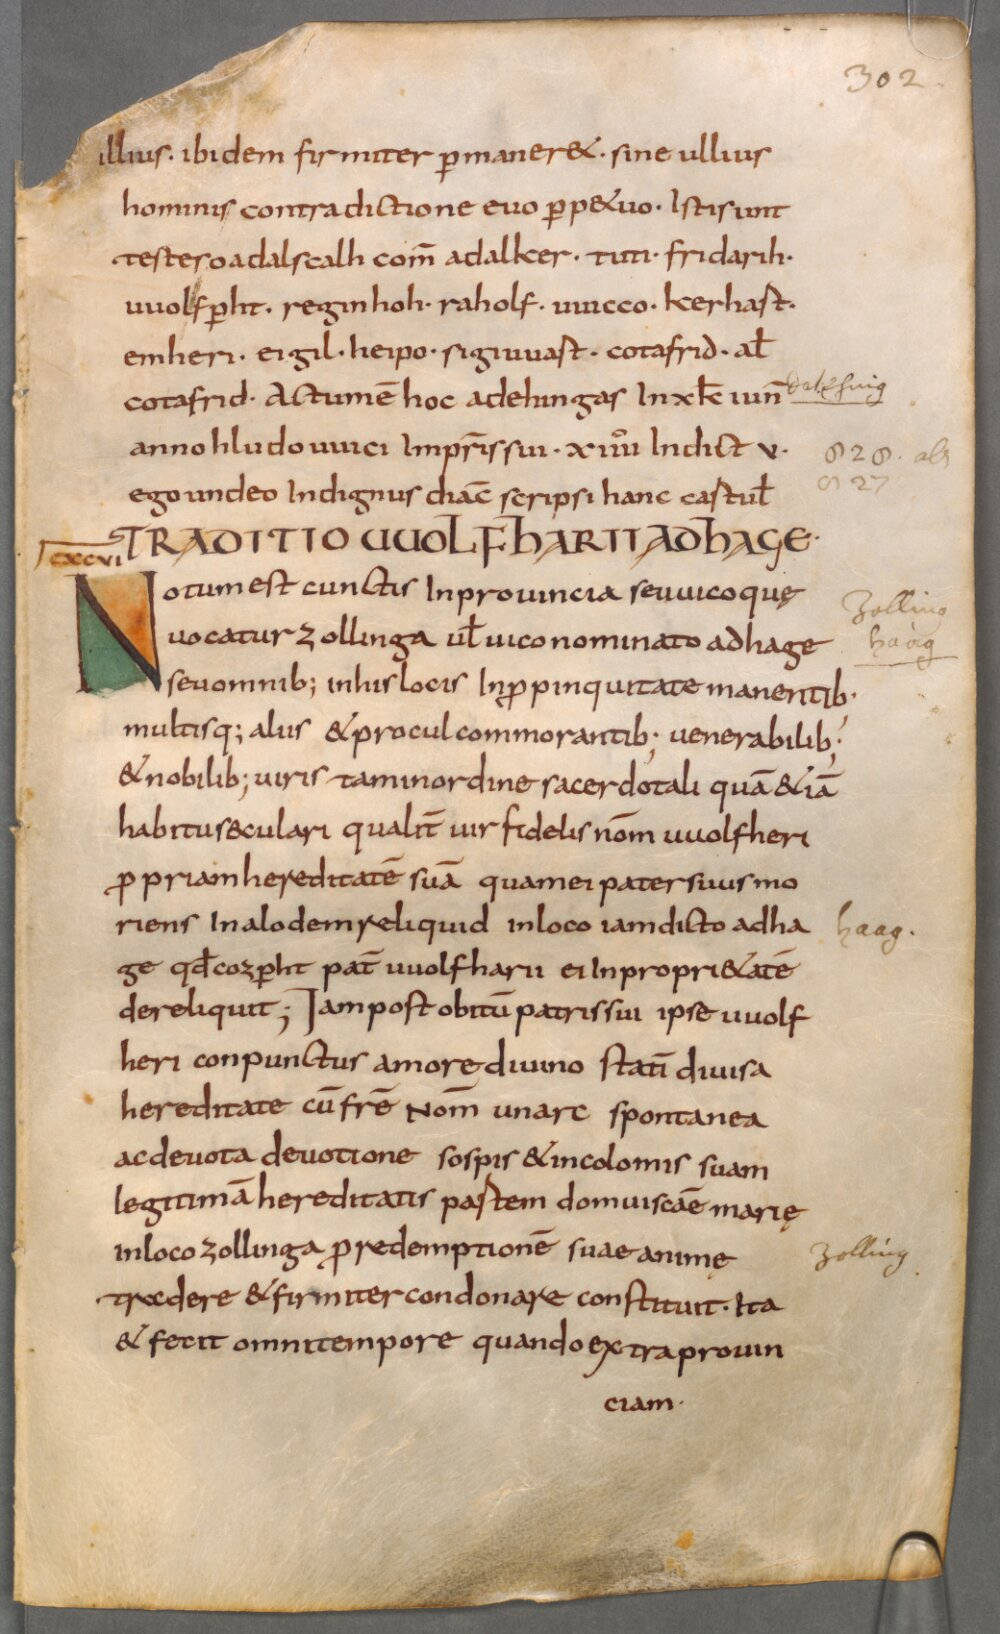 302
illius· ibidem firmiter ꝑmaner&· sine ullius
hominis contradictione euo ꝑp&uo· Isti sunt
testes oadalscalh com̄ adalker· tuti· fridarih·
uuolfꝑht· reginhoh· raholf· uuicco· kerhast·
emheri· eigil· heipo· sigiuuast· cotafrid· al̄
cotafrid· Actum ē hoc adehingas In x kl̄ iun̄
anno hludouuici Impr̄is sui· xiiii Indict v· 828· als
ego undeo Indignus diac̄ scripsi hanc cartul̄ 827
TRADITIO UUOLFHARII AD HAGE·
CXCVI
Notum est cunctis In prouincia seu uico quę Zolling
uocatur zollinga ul̄ uico nominato ad hage haag
seu omnib; in his locis In ꝓpinquitate manentib·
multisq; aliis & procul commorantib; uenerabilib;
& nobilib; uiris tam in ordine sacerdotali quā & iā
habitu seculari qualit̄ uir fidelis nom̄ uuolfheri
ꝓpriam hereditatē suā quam ei pater suus mo
riens In alodem reliquid in loco iam dicto ad ha haag·
ge qđ cozꝑht pat̄ uuolfharii ei In propri&atē
dereliquit; Iam post obitū patris sui ipse uuolf
heri conpunctus amore diuino statī diuisa
hereditate cū frē Nom̄ unarc spontanea
ac deuota deuotione sospis & incolomis suam
legitimā hereditatis partem domui scāe marię
in loco zollinga ꝓ redemptionē suae animę Zolling
tradere & firmiter condonare constituit· Ita
& fecit omni tempore quando extra prouin
ciam·